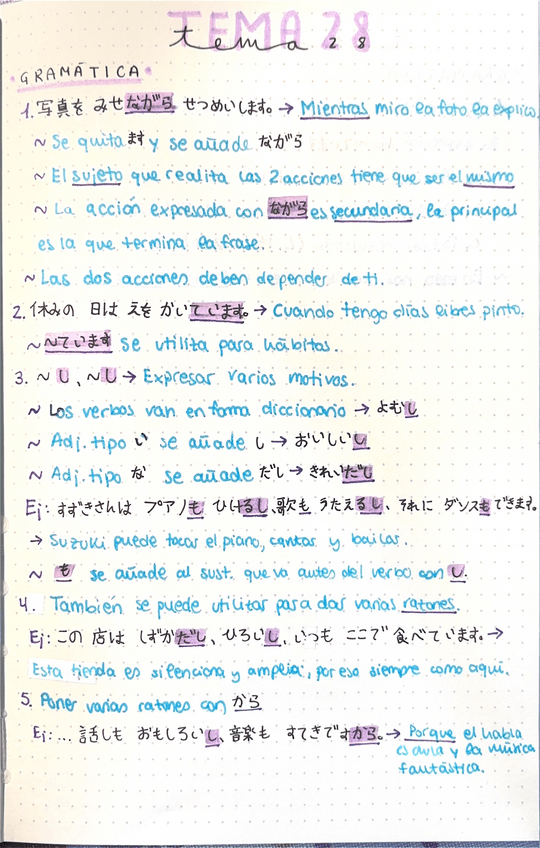 TEMA 28
tema 28
GRAMÁTICA
1. 写真を みせながら せつめいします。→ Mientras miro la foto la explico.
~ Se quita ます y se añade ながら
~ El sujeto que realiza las 2 acciones tiene que ser el mismo
~ La acción expresada con ながら es secundaria, la principal
es la que termina la frase.
~ Las dos acciones deben depender de ti.
2. 休みの 日は えを かいています。→ Cuando tengo días libres pinto.
~ ~ています se utiliza para hábitos.
3. ~し、~し → Expresar varios motivos.
~ Los verbos van en forma diccionario → よむし
~ Adj. tipo い se añade し → おいしいし
~ Adj. tipo な se añade だし → きれいだし
Ej: すずきさんは プアノも ひけるし、歌も うたえるし、それに ダンスも できます。
→ Suzuki puede tocar el piano, cantar y bailar.
~ も se añade al sust. que va antes del verbo con し.
4. También se puede utilizar para dar varias razones.
Ej: この 店は しずかだし、ひろいし、いつも ここで 食べています。→
Esta tienda es silenciona y amplia, por eso siempre como aquí.
5. Poner varias razones con から
Ej: ... 話しも おもしろいし、音楽も すてきですから。→ Porque el habla
es chula y la música
fantástica.